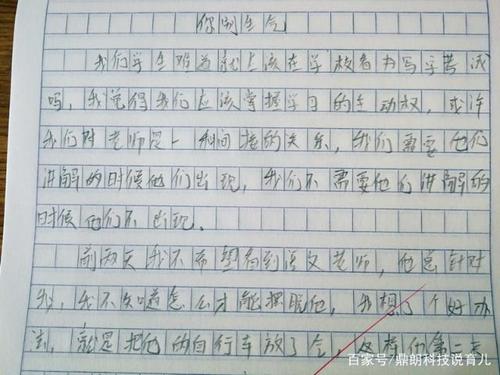 你别生气
我们学生难道就上该在学校看书写字考试
吗，我觉得我们应该掌握学习的主动权，或许
我们对老师是一种间接的关系，我们需要他们
讲解的时候他们出现，我们不需要他们讲解的
时候他们不出现。
前两天我不希望看到语文老师，他总针对
我，我不知道怎么才能摆脱他，我想了个好办
法，就是把他的自行车放了气，这样他第二天
百家号/鼎朗科技说育儿